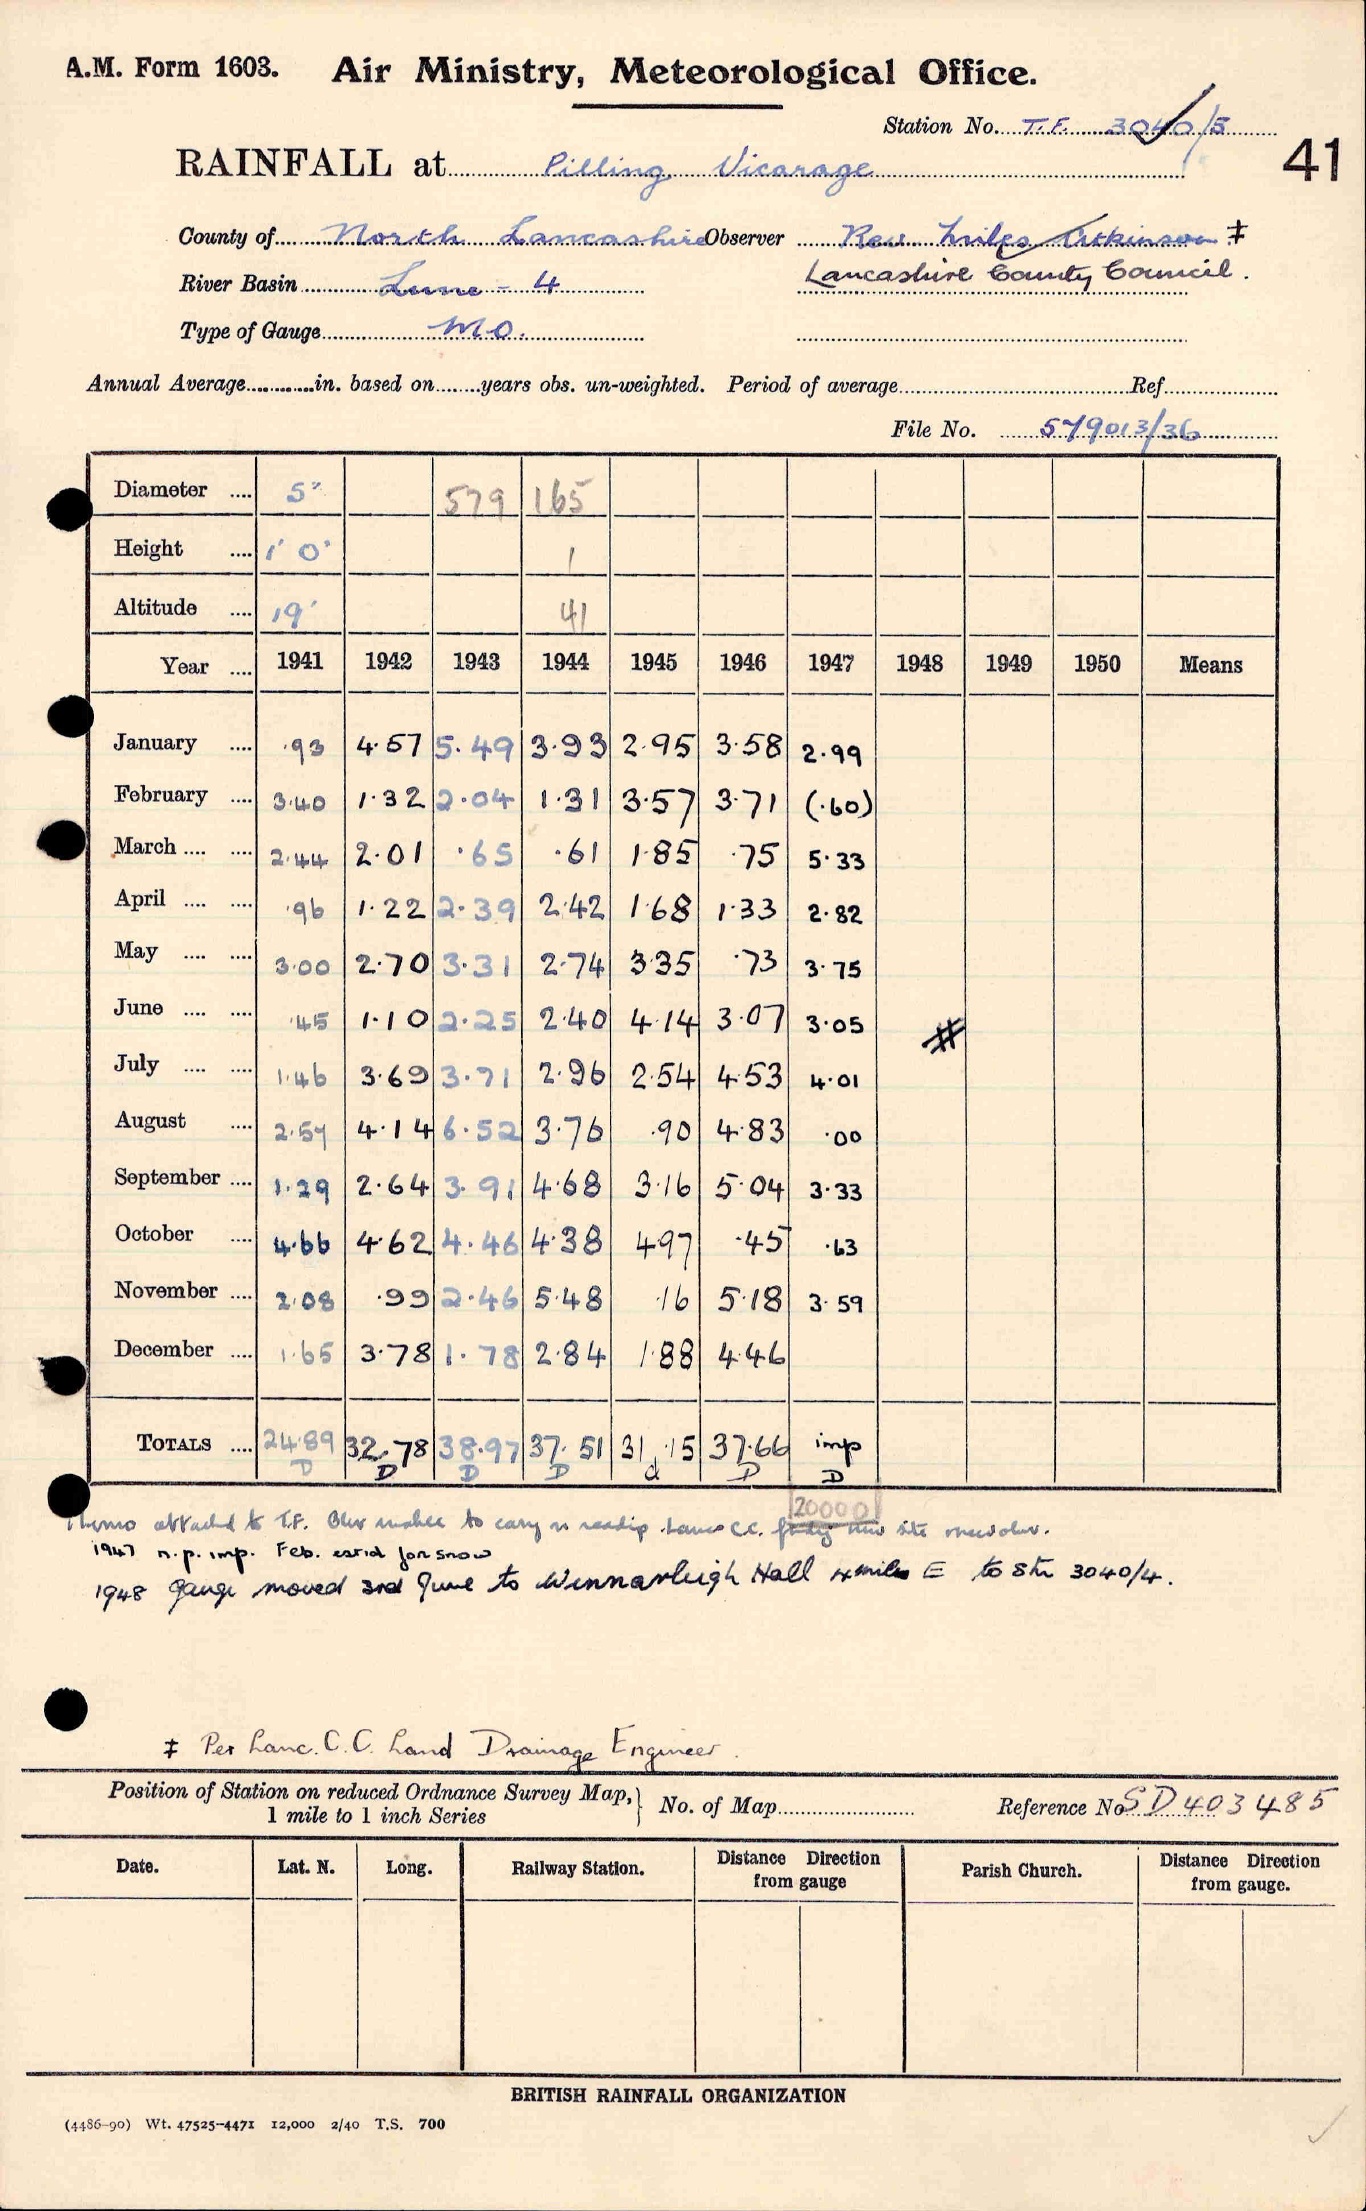 A.M. Form 1603. Air Ministry, Meteorological Office.
Station No. T.F. 3040/5
41
RAINFALL at Pilling Vicarage
County of North Lancashire Observer Rev. Miles Atkinson ‡
River Basin Lune - 4 Lancashire County Council.
Type of Gauge M.O.
Annual Average............in. based on.......years obs. un-weighted. Period of average.......... Ref..........
File No. 579013/36
Diameter .... 5" 579 165
Height .... 1' 0" 1
Altitude .... 19' 41
Year .... 1941 1942 1943 1944 1945 1946 1947 1948 1949 1950 Means
January .... .93 4.57 5.49 3.93 2.95 3.58 2.99
February .... 3.40 1.32 2.04 1.31 3.57 3.71 (.60)
March .... .... 2.44 2.01 .65 .61 1.85 .75 5.33
April .... .... .96 1.22 2.39 2.42 1.68 1.33 2.82
May .... .... 3.00 2.70 3.31 2.74 3.35 .73 3.75
June .... .... .45 1.10 2.25 2.40 4.14 3.07 3.05 #
July .... .... 1.46 3.69 3.71 2.96 2.54 4.53 4.01
August .... 2.57 4.14 6.52 3.76 .90 4.83 .00
September .... 1.29 2.64 3.91 4.68 3.16 5.04 3.33
October .... 4.66 4.62 4.46 4.38 4.97 .45 .63
November .... 2.08 .99 2.46 5.48 .16 5.18 3.59
December .... 1.65 3.78 1.78 2.84 1.88 4.46
TOTALS .... 24.89 32.78 38.97 37.51 31.15 37.66 imp
D D D D d D D
20000
Memo attached to T.F. Obsr unable to carry on readip. Lancs C.C. new site
1947 n.p. imp. Feb. estd for snow
1948 gauge moved 3rd June to Winmarleigh Hall 4 miles E to Stn 3040/4.
‡ Per Lanc. C.C. Land Drainage Engineer.
Position of Station on reduced Ordnance Survey Map, 1 mile to 1 inch Series } No. of Map.......... Reference No SD403485
Date. Lat. N. Long. Railway Station. Distance Direction from gauge Parish Church. Distance Direction from gauge.
BRITISH RAINFALL ORGANIZATION
(4486-90) Wt. 47525-4471 12,000 2/40 T.S. 700